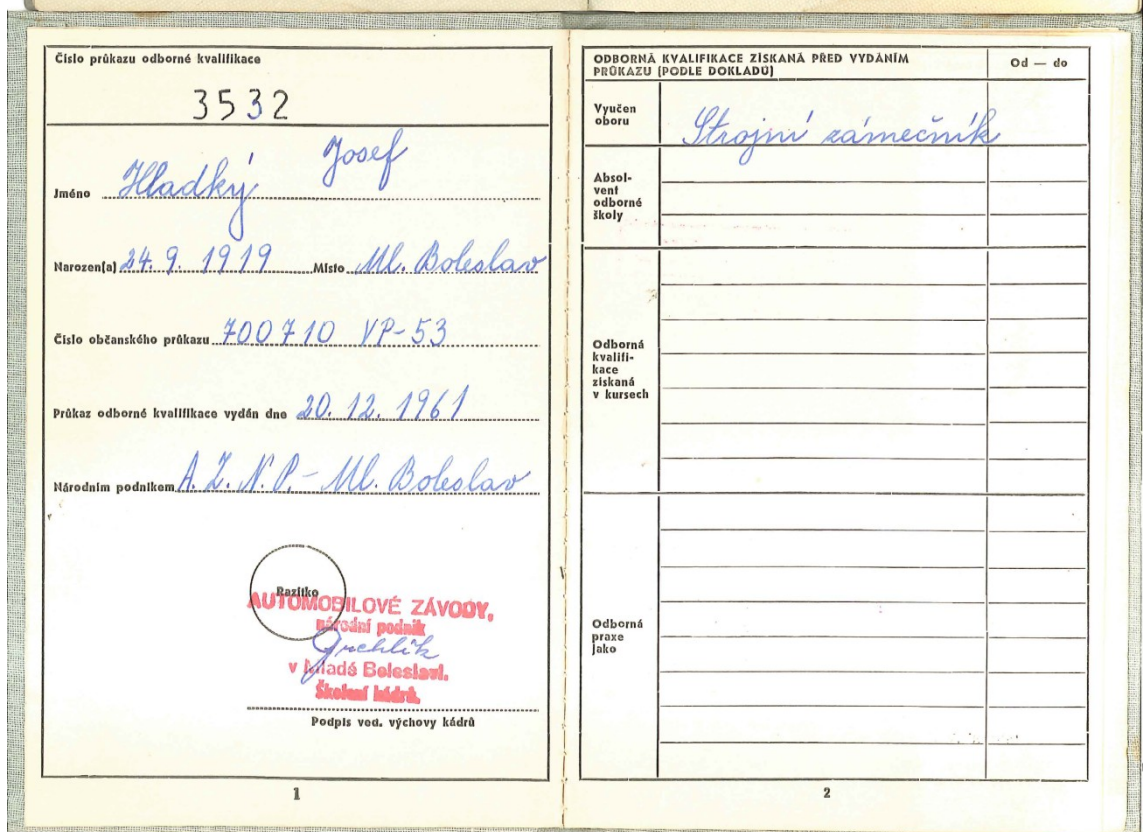 Číslo průkazu odborné kvalifikace
3532
Jméno Hladký Josef
Narozen(a) 24. 9. 1919 Místo Ml. Boleslav
Číslo občanského průkazu 700710 VP-53
Průkaz odborné kvalifikace vydán dne 20. 12. 1961
Národním podnikem A. Z. N. P. - Ml. Boleslav
Razítko
AUTOMOBILOVÉ ZÁVODY,
národní podnik
v Mladé Boleslavi.
Školení kádrů.
Podpis ved. výchovy kádrů
1
ODBORNÁ KVALIFIKACE ZÍSKANÁ PŘED VYDÁNÍM
PRŮKAZU (PODLE DOKLADŮ)
Od — do
Vyučen
oboru
Strojní zámečník
Absol-
vent
odborné
školy
Odborná
kvalifi-
kace
získaná
v kursech
Odborná
praxe
jako
2